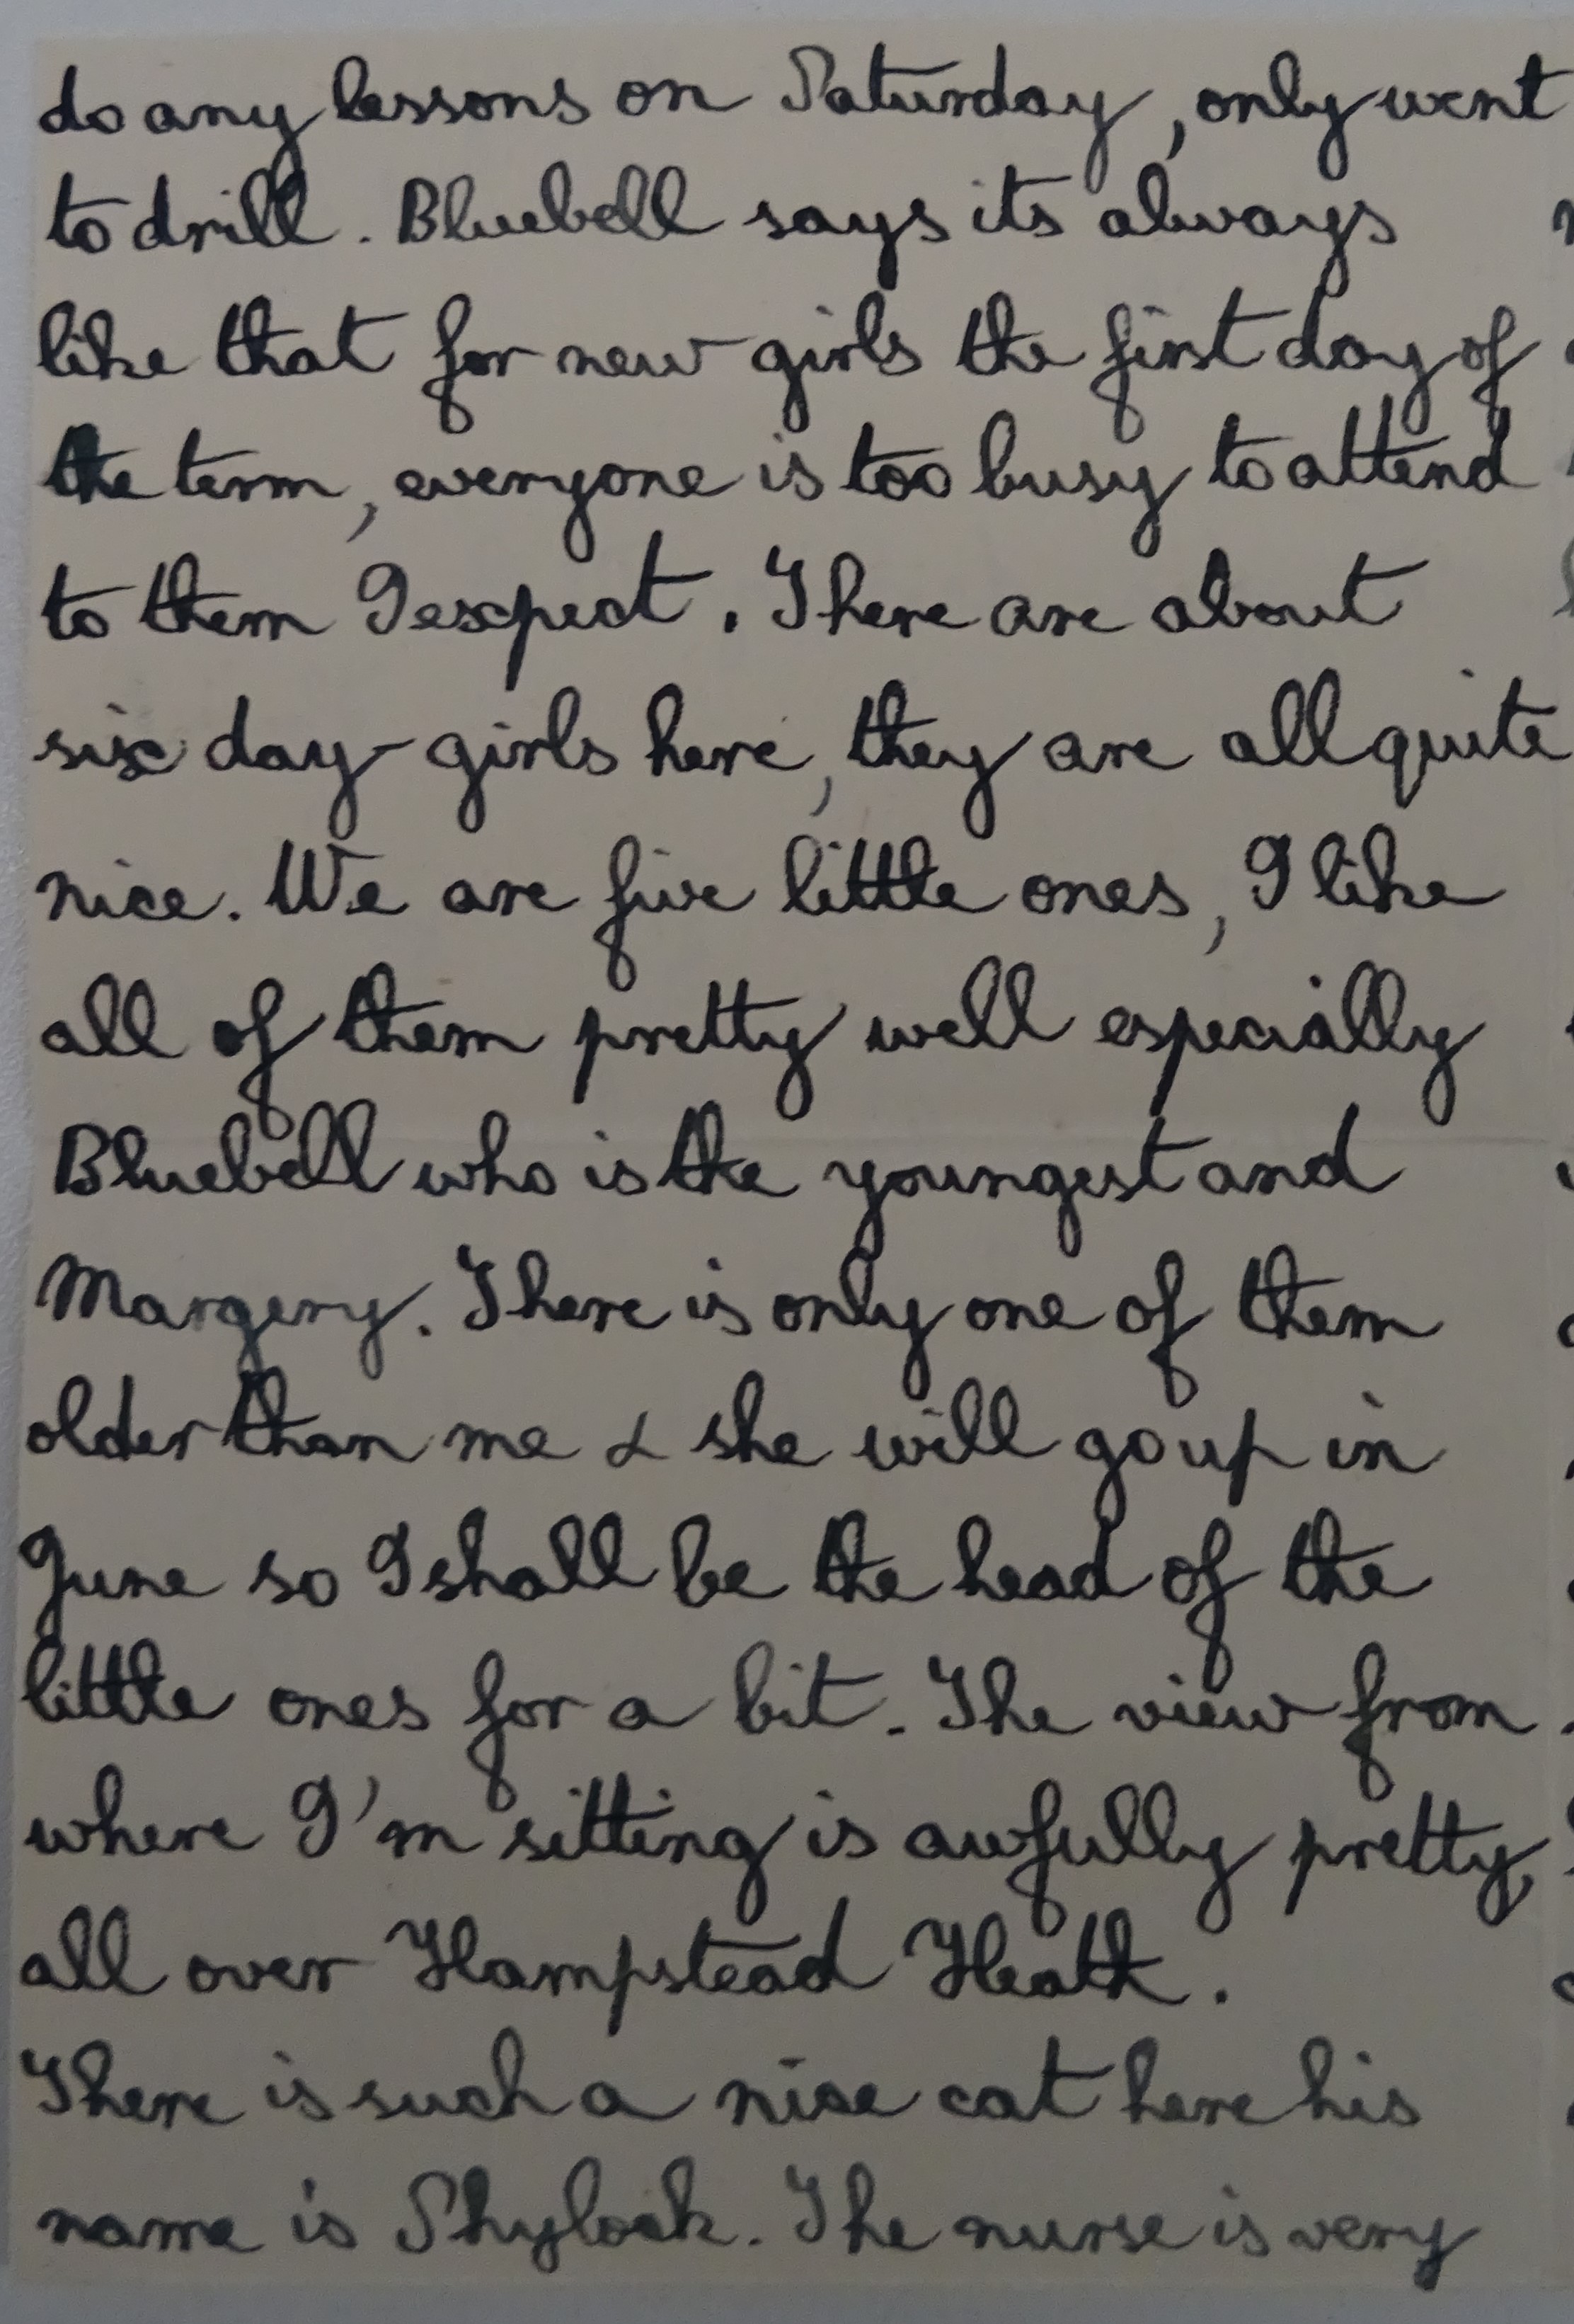 do any lessons on Saturday, only went
to drill. Bluebell says its always
like that for new girls the first day of
the term, everyone is too busy to attend
to them I expect. There are about
six day-girls here, they are all quite
nice. We are five little ones, I like
all of them pretty well especially
Bluebell who is the youngest and
Margery. There is only one of them
older than me & she will go up in
June so I shall be the head of the
little ones for a bit. The view from
where I'm sitting is awfully pretty,
all over Hampstead Heath.
There is such a nice cat here his
name is Shylock. The nurse is very